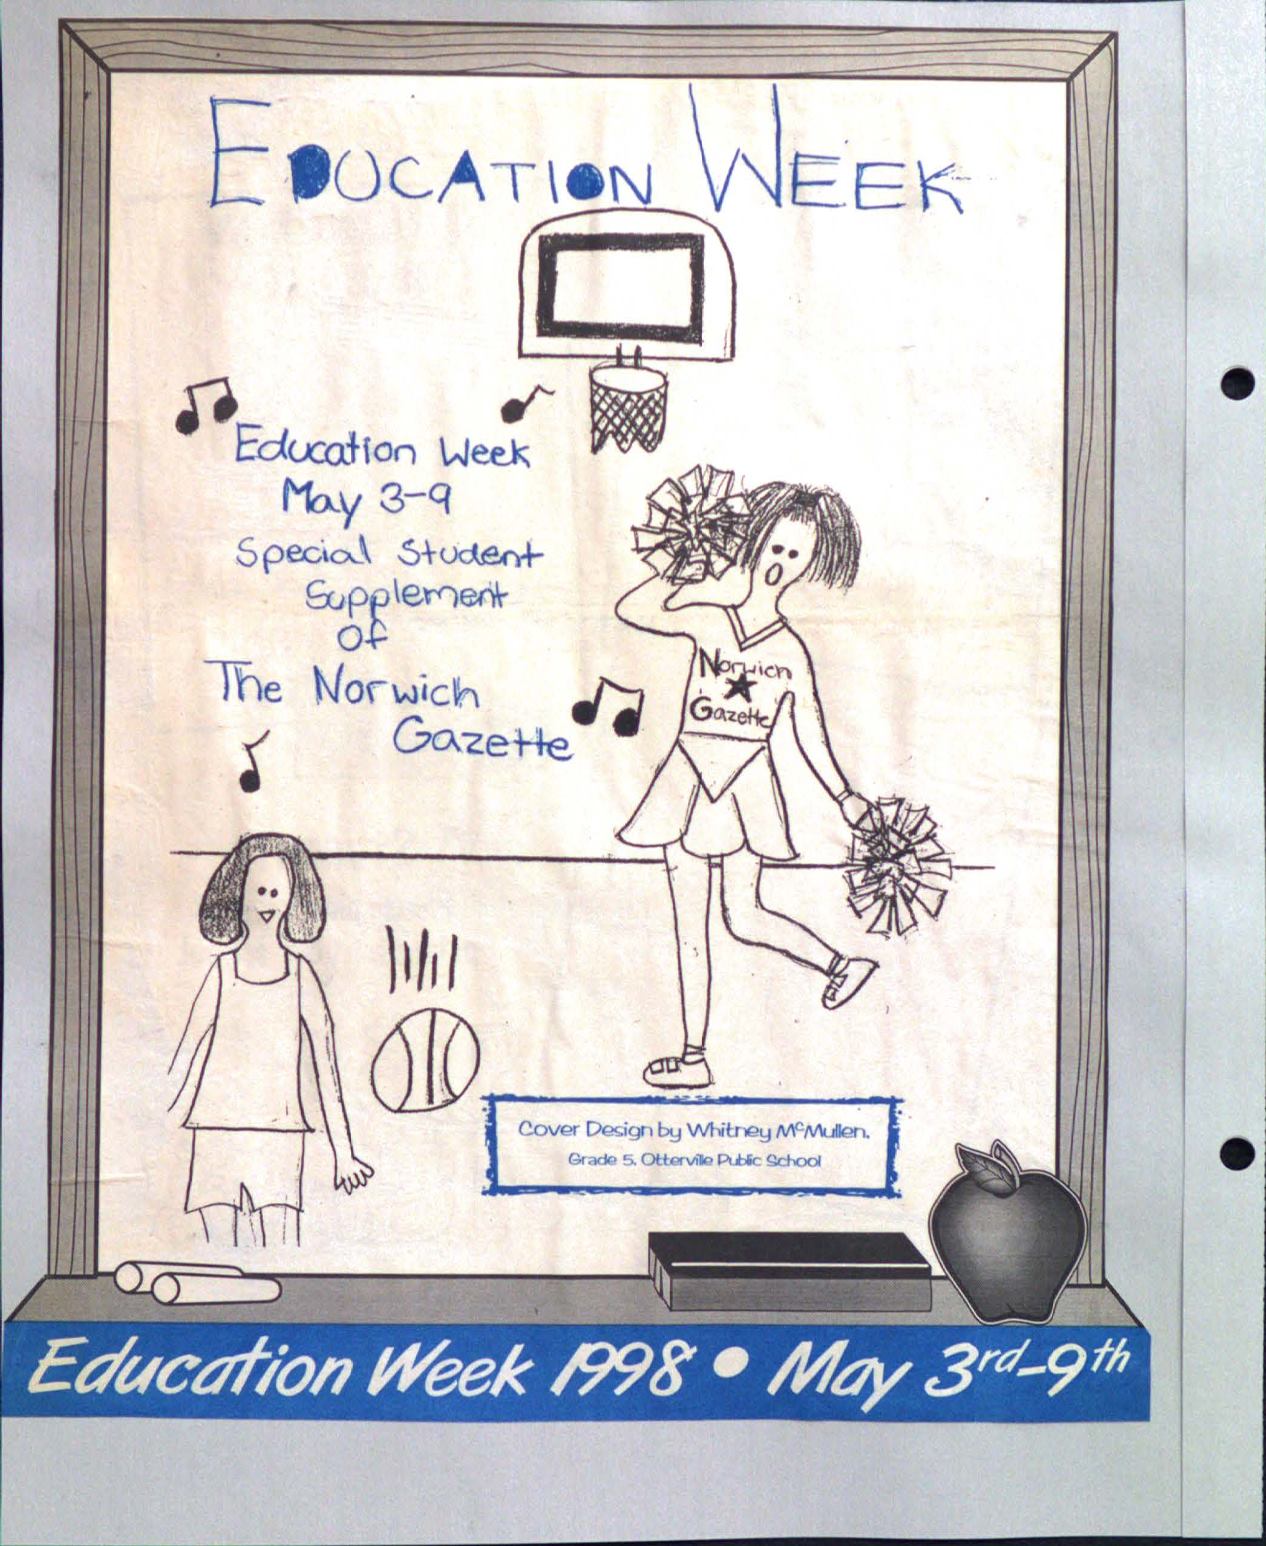 EDUCATION WEEK
Education Week
May 3-9
Special Student
Supplement
Of
The Norwich
Gazette
Norwich
Gazette
Cover Design by Whitney McMullen.
Grade 5, Otterville Public School
Education Week 1998 • May 3rd-9th